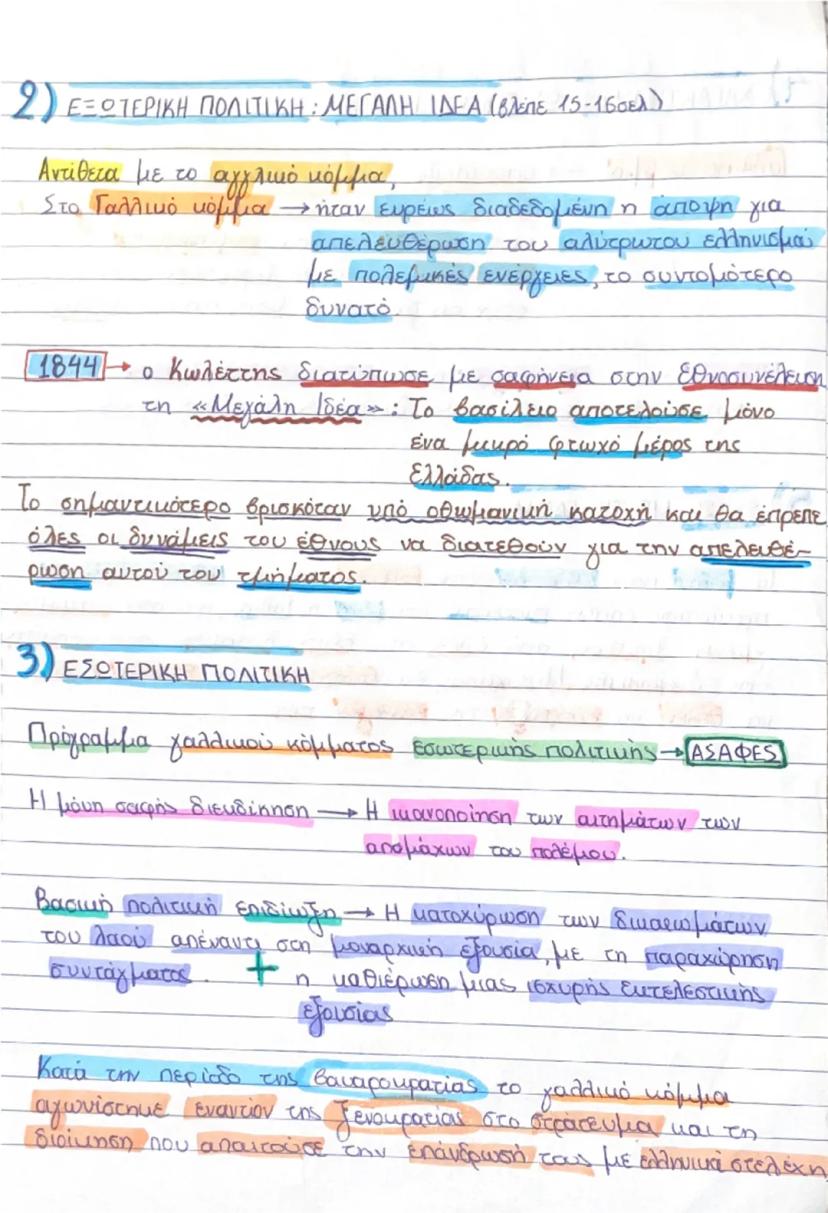 2) ΕΞΩΤΕΡΙΚΗ ΠΟΛΙΤΙΚΗ: ΜΕΓΑΛΗ ΙΔΕΑ (βλέπε 15-16σελ)
Αντίθετα με το αγγλικό κόμμα,
Στο Γαλλικό κόμμα → ήταν ευρέως διαδεδομένη η άποψη για
απελευθέρωση του αλύτρωτου ελληνισμού
με πολεμικές ενέργειες, το συντομότερο
δυνατό
1844 → ο Κωλέττης διατύπωσε με σαφήνεια στην Εθνοσυνέλευση
τη «Μεγάλη Ιδέα»: Το βασίλειο αποτελούσε μόνο
ένα μικρό φτωχό μέρος της
Ελλάδας.
Το σημαντικότερο βρισκόταν υπό οθωμανική κατοχή και θα έπρεπε
όλες οι δυνάμεις του έθνους να διατεθούν για την απελευθέ-
ρωση αυτού του τμήματος.
3) ΕΣΩΤΕΡΙΚΗ ΠΟΛΙΤΙΚΗ
Πρόγραμμα γαλλικού κόμματος εσωτερικής πολιτικής → ΑΣΑΦΕΣ
Η μόνη σαφής διεκδίκηση → Η ικανοποίηση των αιτημάτων των
απομάχων του πολέμου.
Βασική πολιτική επιδίωξη → Η κατοχύρωση των δικαιωμάτων
του λαού απέναντι στη μοναρχική εξουσία, με τη παραχώρηση
συντάγματος. + η καθιέρωση μιας ισχυρής εκτελεστικής
εξουσίας
Κατά την περίοδο της βαυαροκρατίας το γαλλικό κόμμα
αγωνίστηκε εναντίον της ξενοκρατίας στο στράτευμα και τη
διοίκηση που απαιτούσε την επάνδρωσή τους με ελληνικά στελέχη